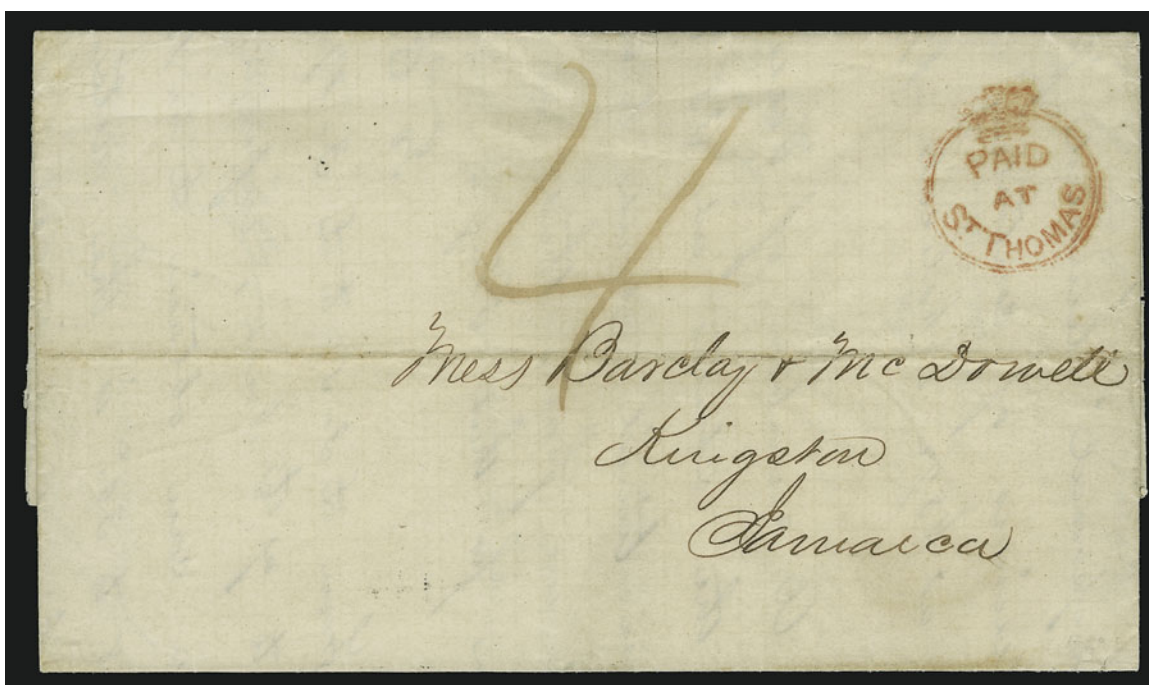 4
PAID
AT
ST. THOMAS
Mess Barclay & McDowell
Kingston
Jamaica